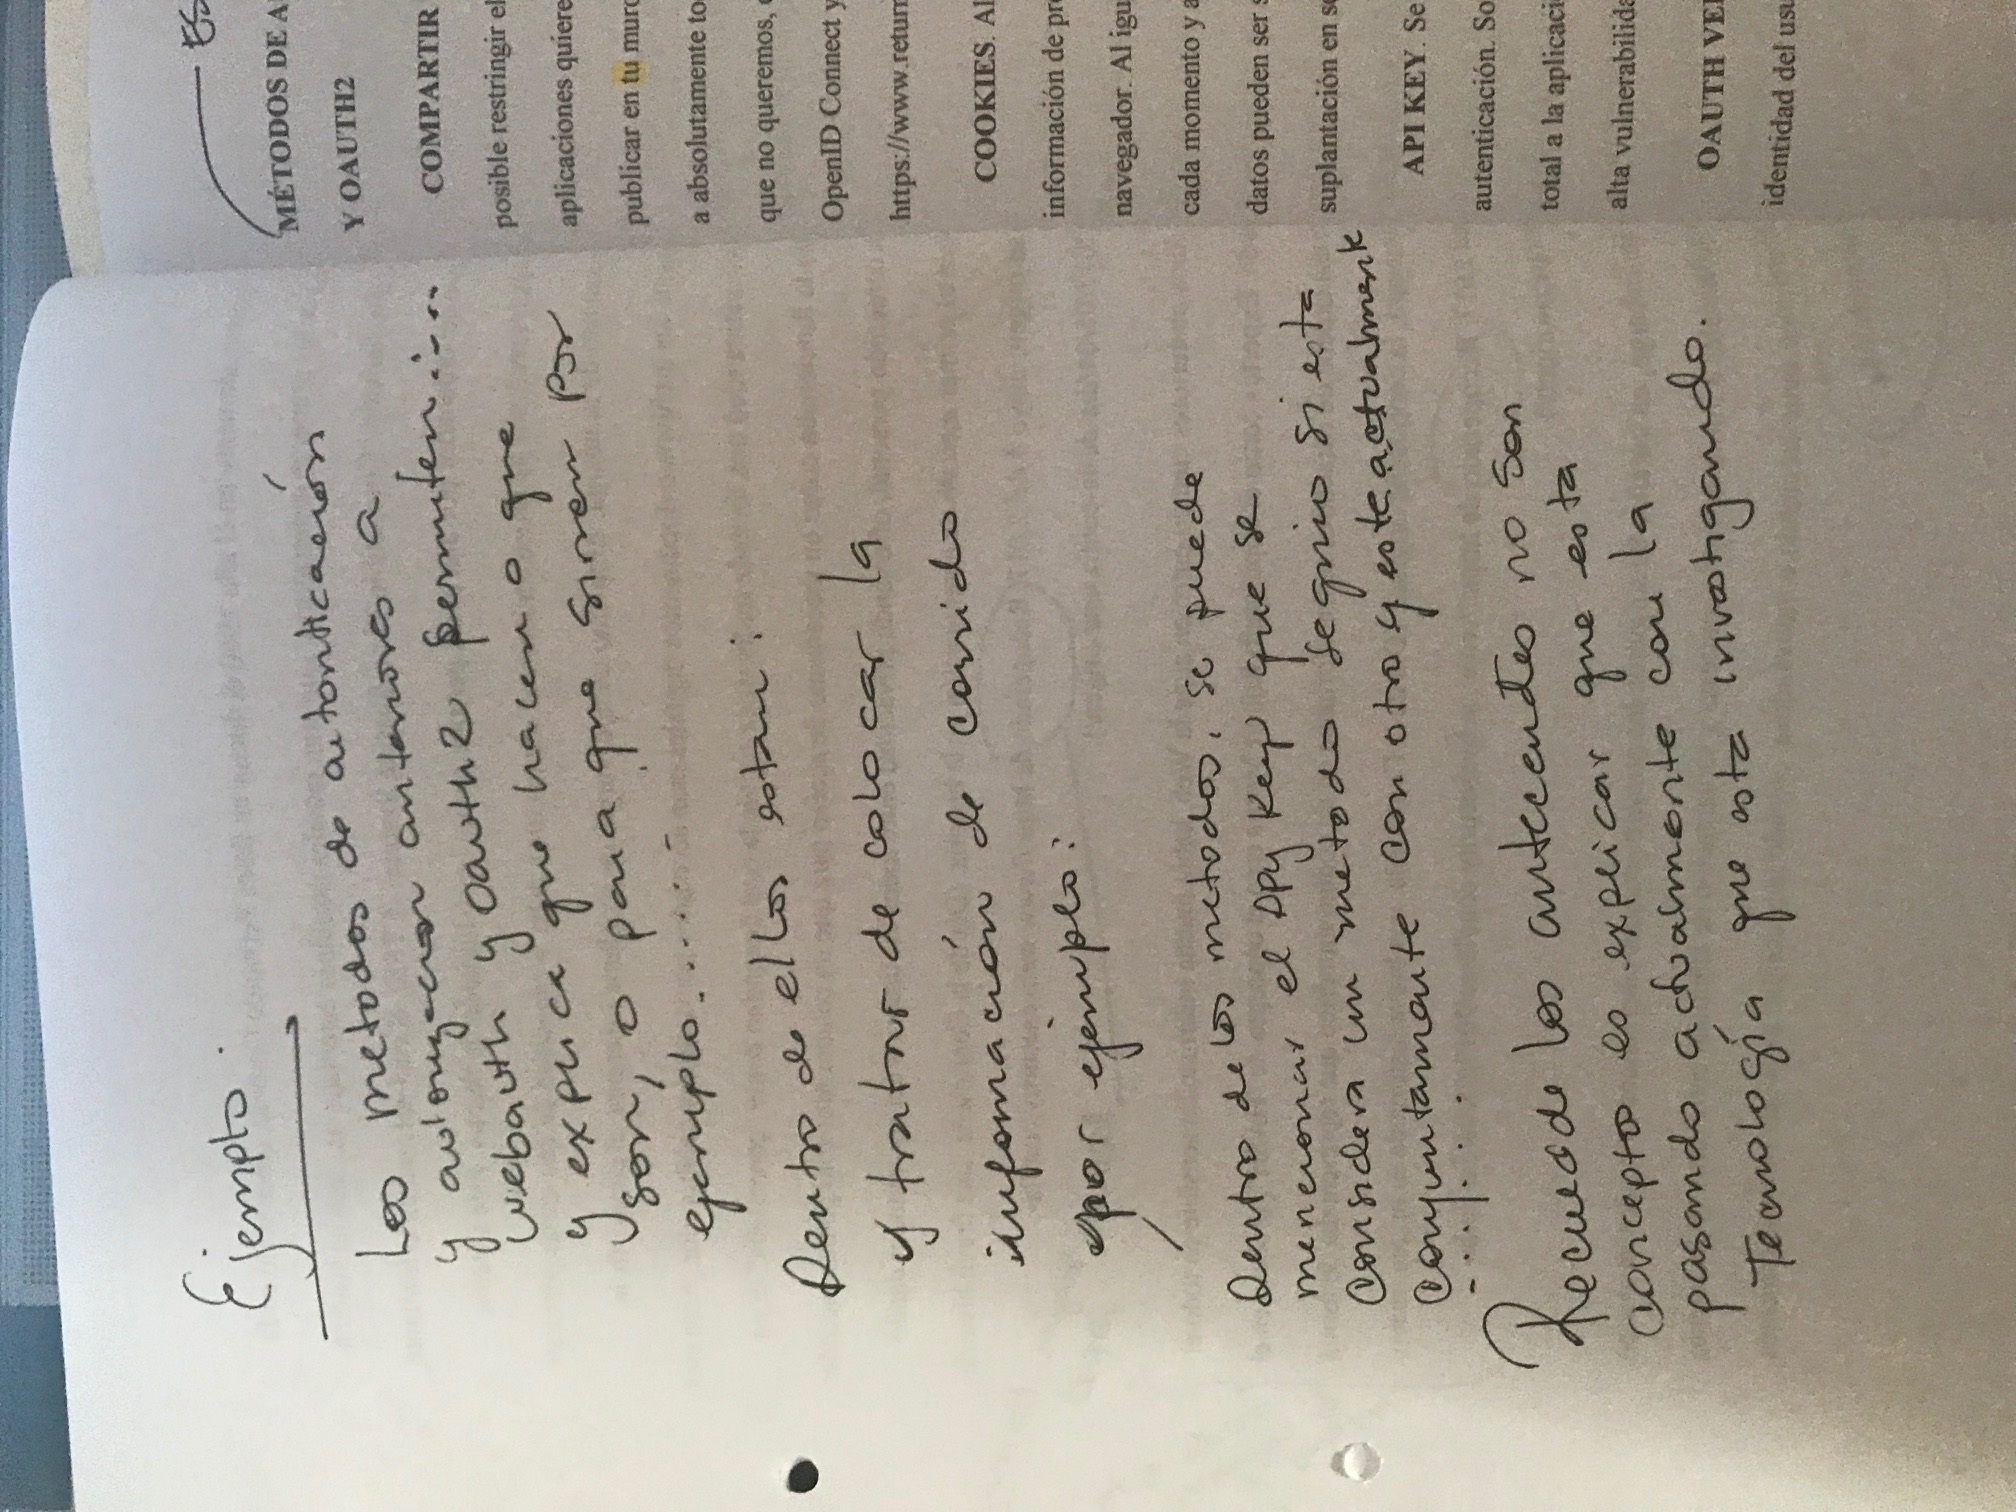 Ejemplo.
Los metodos de autonticación
y autorizacion anteriores a
webauth y Oauth2 permiten:...
y explica que hacen o que
son, o para que sirven por
ejemplo......
Dentro de ellos estan:
y tratar de colocar la
infomación de corrido
por ejemplo:
Dentro de los metodos, se puede
mencionar el Apy Key que se
considera un metodo seguro si esta
conjuntamente con otro y este actualmente
......
Recuerde los antecendtes no son
conceptos es explicar que esta
pasando actualmente con la
Tecnología que esta investigando.
ES
MÉTODOS DE A
Y OAUTH2
COMPARTIR
posible restringir el
aplicaciones quiere
publicar en tu muro
a absolutamente to
que no queremos,
OpenID Connect y
https://www.return
COOKIES. Al
información de pr
navegador. Al igu
cada momento y a
datos pueden ser s
suplantación en se
API KEY. Se
autenticación. So
total a la aplicaci
alta vulnerabilida
OAUTH VE
identidad del usu